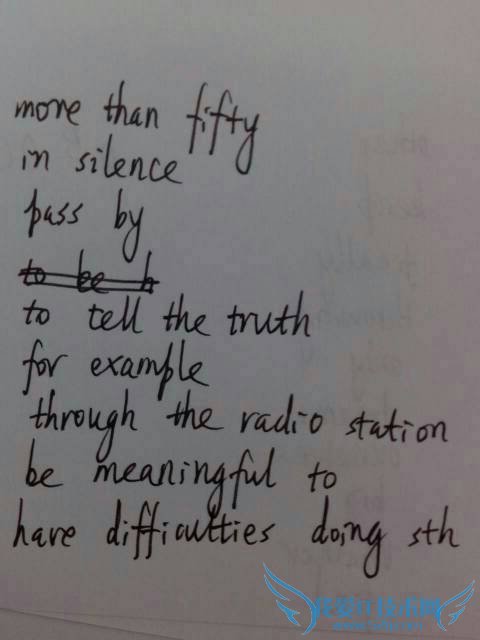 more than fifty
in silence
pass by
to be h
to tell the truth
for example
through the radio station
be meaningful to
have difficulties doing sth